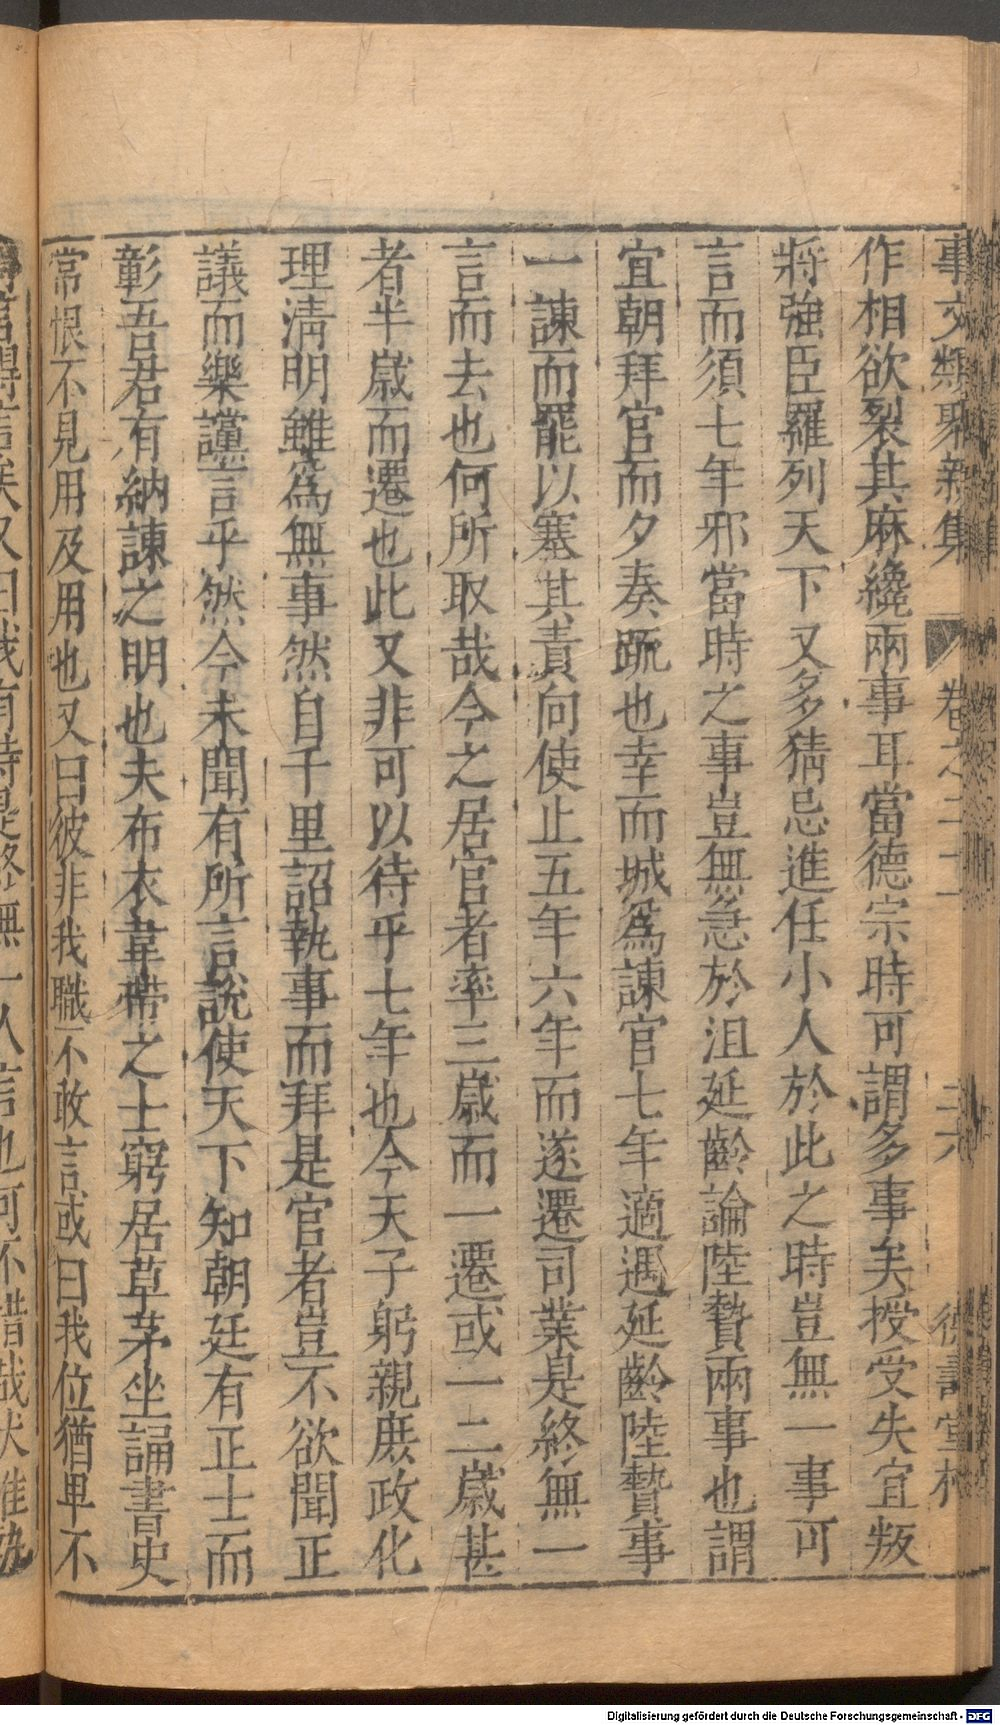 事文類聚新集 卷之二十一 三六 德壽堂梓
作相欲裂其麻纔兩事耳當德宗時可謂多事矣授受失宜叛
將強臣羅列天下又多猜忌進任小人於此之時豈無一事可
言而須七年邪當時之事豈無急於沮延齡論陸贄兩事也謂
宜朝拜官而夕奏疏也幸而城爲諫官七年適遇延齡陸贄事
一諫而罷以塞其責向使止五年六年而遂遷司業是終無一
言而去也何所取哉今之居官者率三歲而一遷或一二歲甚
者半歲而遷也此又非可以待乎七年也今天子躬親庶政化
理淸明雖爲無事然自千里詔執事而拜是官者豈不欲聞正
議而樂讜言乎然今未聞有所言說使天下知朝廷有正士而
彰吾君有納諫之明也夫布衣韋帶之士窮居草茅坐誦書史
常恨不見用及用也又曰彼非我職不敢言或曰我位猶卑不
得言矣又曰我有待是終無一人言也可不惜哉伏惟執
Digitalisierung gefördert durch die Deutsche Forschungsgemeinschaft - DFG